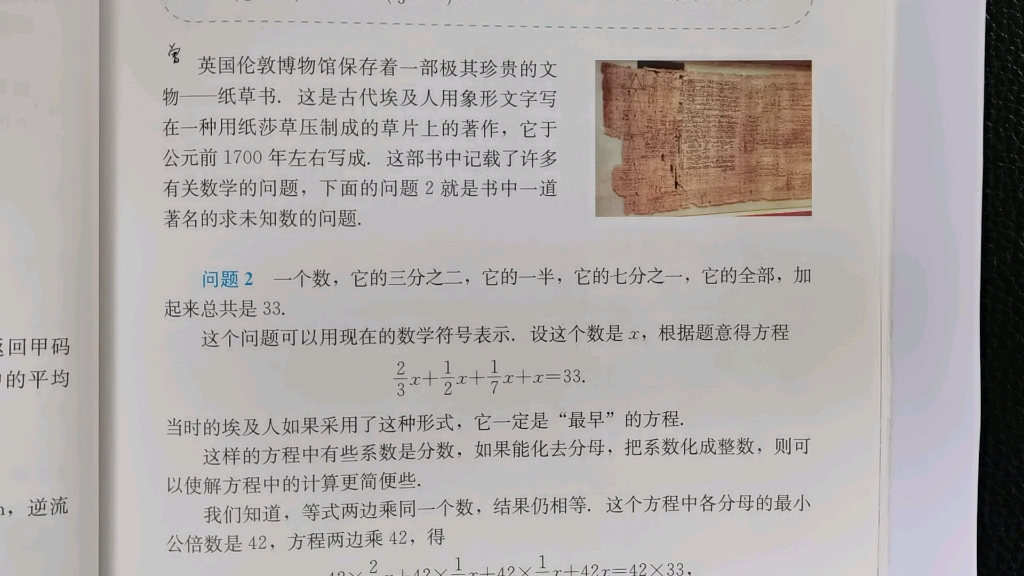 曾
英国伦敦博物馆保存着一部极其珍贵的文
物——纸草书．这是古代埃及人用象形文字写
在一种用纸莎草压制成的草片上的著作，它于
公元前 1700 年左右写成．这部书中记载了许多
有关数学的问题，下面的问题 2 就是书中一道
著名的求未知数的问题．
问题 2 一个数，它的三分之二，它的一半，它的七分之一，它的全部，加
起来总共是 33．
这个问题可以用现在的数学符号表示．设这个数是 x，根据题意得方程
2/3 x + 1/2 x + 1/7 x + x = 33．
当时的埃及人如果采用了这种形式，它一定是“最早”的方程．
这样的方程中有些系数是分数，如果能化去分母，把系数化成整数，则可
以使解方程中的计算更简便些．
我们知道，等式两边乘同一个数，结果仍相等．这个方程中各分母的最小
公倍数是 42，方程两边乘 42，得
42× 2/3 x + 42× 1/2 x + 42× 1/7 x + 42x = 42×33，
返回甲码
的平均
，逆流